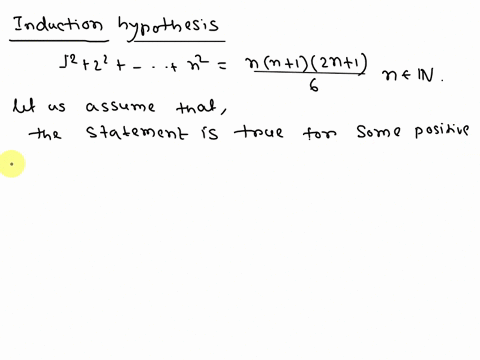 Induction hypothesis
1² + 2² + - - - + n² = n(n+1)(2n+1)/6 n ∈ ℕ.
Let us assume that,
the statement is true for some positive